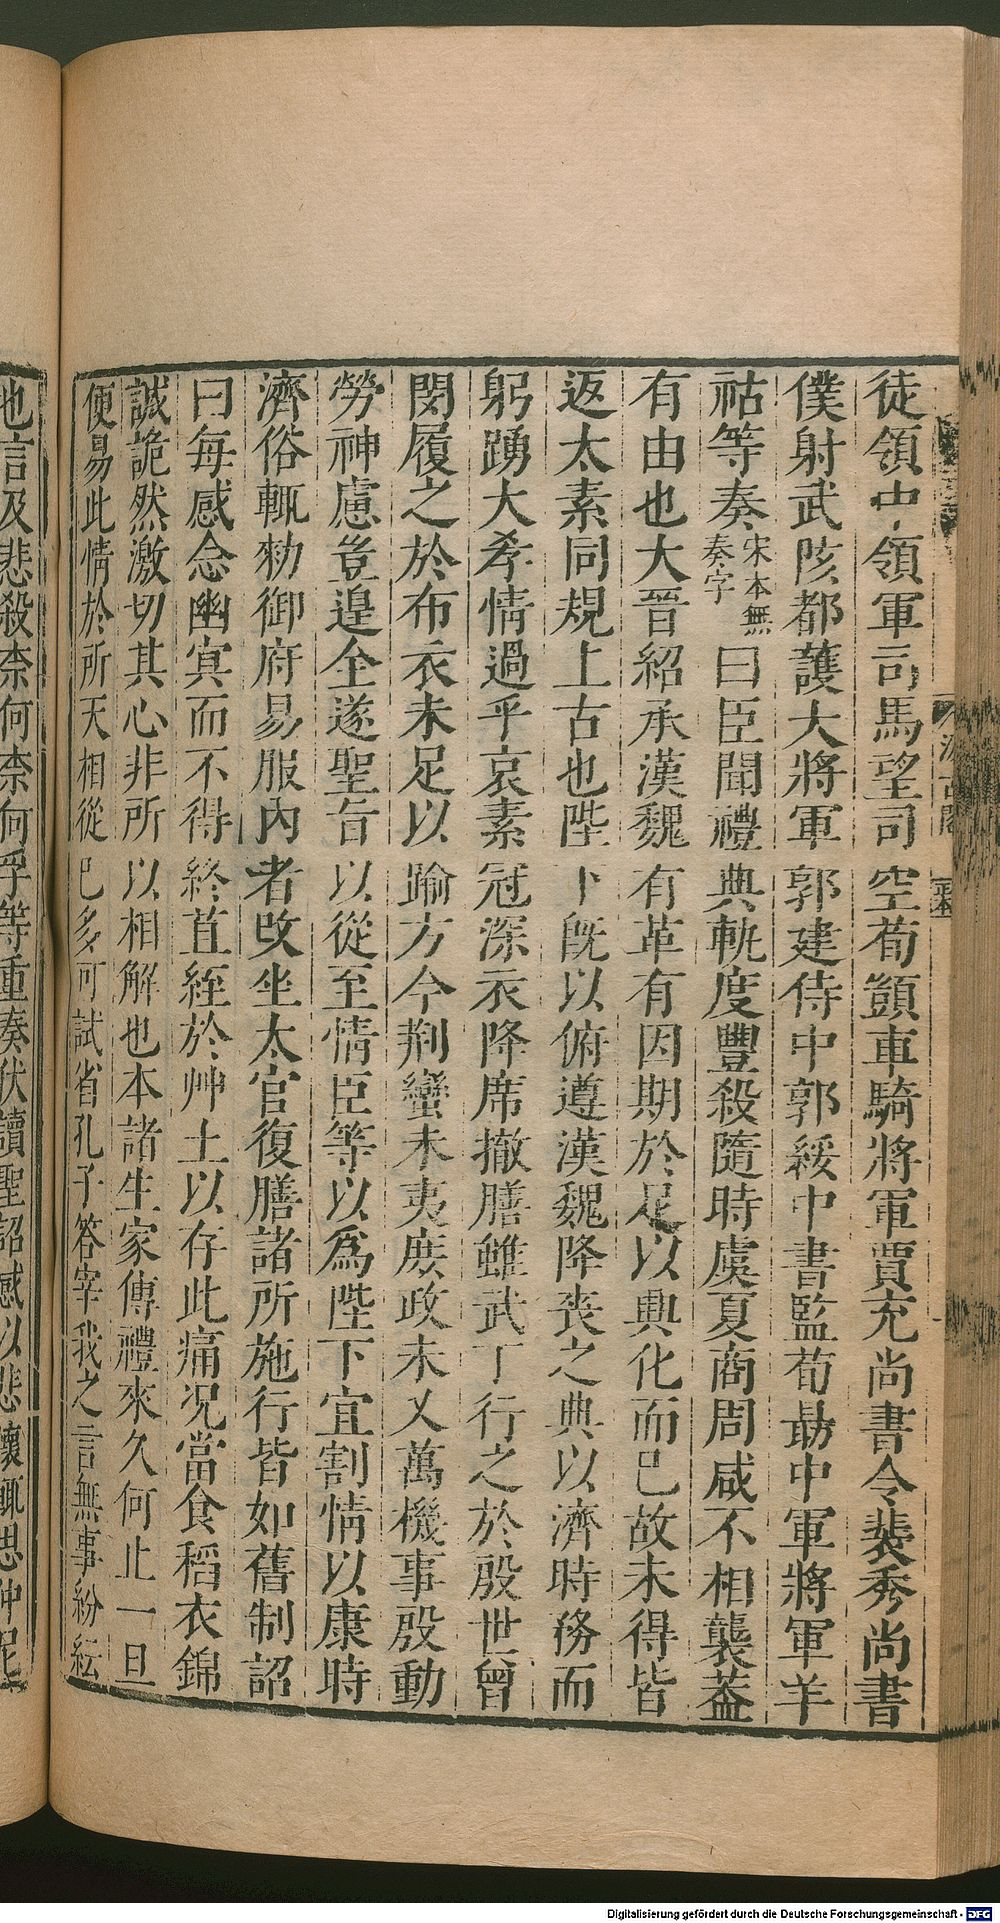 徒領中領軍司馬望司空荀顗車騎將軍賈充尚書令裴秀尚書
僕射武陔都護大將軍郭建侍中郭綏中書監荀勗中軍將軍羊
祜等奏宋本無奏字曰臣聞禮典軌度豐殺隨時虞夏商周咸不相襲蓋
有由也大晉紹承漢魏有革有因期於足以興化而已故未得皆
返太素同規上古也陛下旣以俯遵漢魏降喪之典以濟時務而
躬踴大孝情過乎哀素冠深衣降席撤膳雖武丁行之於殷世曾
閔履之於布衣未足以踰方今荆蠻未夷庶政未乂萬機事殷動
勞神慮豈遑全遂聖旨以從至情臣等以爲陛下宜割情以康時
濟俗輒勑御府易服內者改坐太官復膳諸所施行皆如舊制詔
曰每感念幽冥而不得終苴絰於艸土以存此痛况當食稻衣錦
誠詭然激切其心非所以相解也本諸生家傳禮來久何止一旦
便易此情於所天相從已多可試省孔子答宰我之言無事紛紜
也言及悲殺柰何柰何孚等重奏伏讀聖詔感以悲懷輒思仲尼
汲古閣
Digitalisierung gefördert durch die Deutsche Forschungsgemeinschaft - DFG